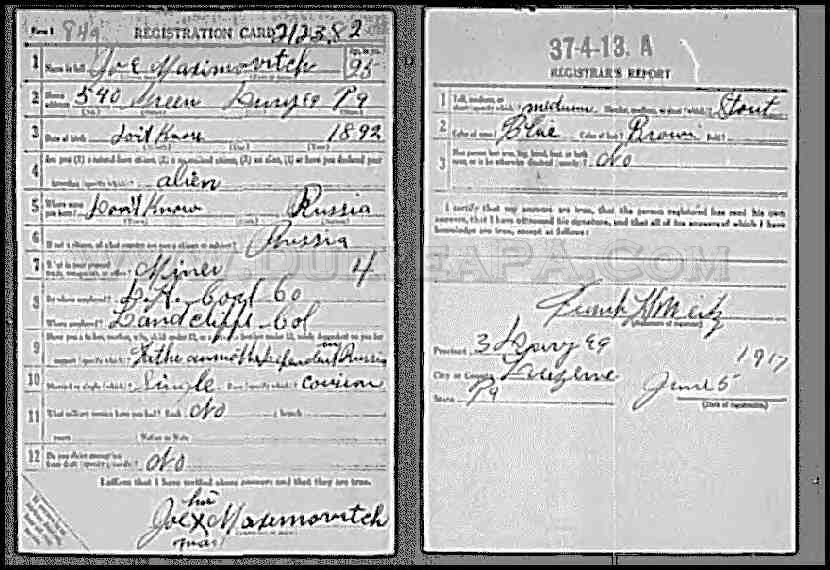 Form 1 849 REGISTRATION CARD 212382
1 Name in full Joe Maximovitch Age, in yrs. 25
2 Home address 540 Green Duryea Pa
3 Date of birth Don't Know 1892
4 Are you (1) a natural born citizen, (2) a naturalized citizen, (3) an alien, (4) or have you declared your
intention (specify which)? alien
5 Where were you born? Don't Know Russia
6 If not a citizen, of what country are you a citizen or subject? Russia
7 What is your present trade, occupation, or office? Miner 4
8 By whom employed? Coal Co
Where employed? Col
9 Have you a father, mother, wife, child under 12, or a sister or brother under 12, solely dependent on you for
support (specify which)? Russia
10 Married or single (which)? Single Race (specify which)?
11 What military service have you had? Rank No ; branch
years Nation or State
12 Do you claim exemption from draft (specify grounds)? No
I affirm that I have verified above answers and that they are true.
his
Joe X Maximovitch
mark
37-4-13. A
REGISTRAR'S REPORT
1 Tall, medium, or short (specify which)? medium Slender, medium, or stout (which)? Stout
2 Color of eyes? Blue Color of hair? Brown Bald?
3 Has person lost arm, leg, hand, foot, or both eyes, or is he otherwise disabled (specify)? No
I certify that my answers are true, that the person registered has read his own
answers, that I have witnessed his signature, and that all of his answers of which I have
knowledge are true, except as follows:
WWW.DURYEAPA.COM
Frank
(Signature of registrar)
Precinct 3 Duryea
City or County Luzerne
State Pa
June 5 1917
(Date of registration)